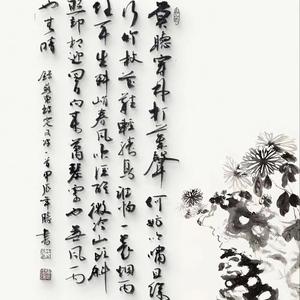 莫聽穿林打葉聲何妨吟嘯且徐
行竹杖芒鞋輕勝馬誰怕一蓑煙雨
任平生料峭春風吹酒醒微冷山頭斜
照卻相迎回首向來蕭瑟處也無風雨
也無晴
錄蘇東坡定風波一首甲辰年書